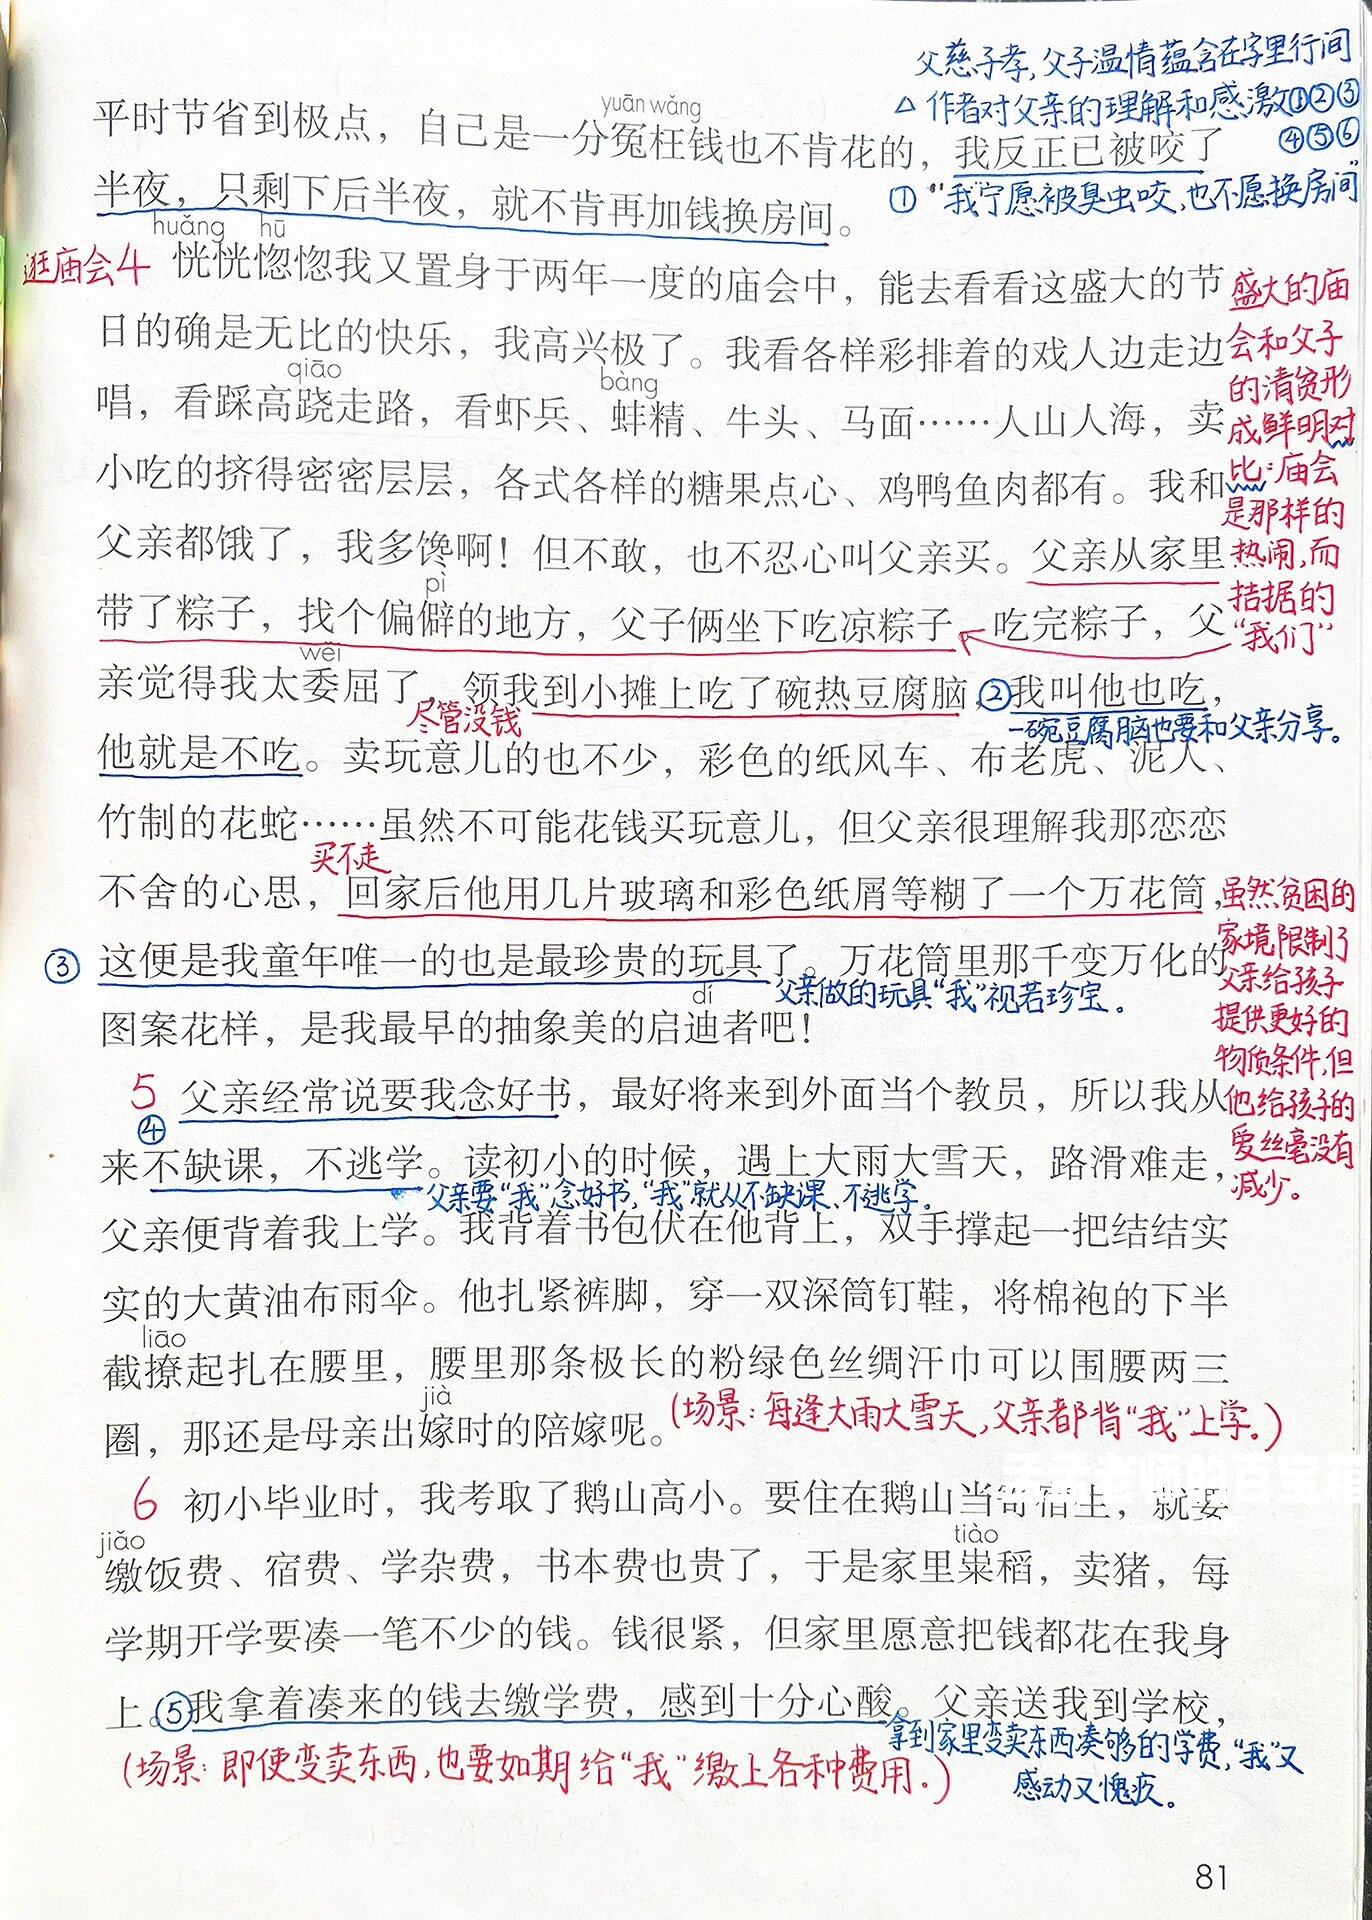 父慈子孝,父子温情蕴含在字里行间
△作者对父亲的理解和感激①②③
④⑤⑥
yuān wǎng
平时节省到极点，自己是一分冤枉钱也不肯花的，我反正已被咬了
①“我”宁愿被臭虫咬,也不愿换房间”
半夜，只剩下后半夜，就不肯再加钱换房间。
huǎng hū
逛庙会4 恍恍惚惚我又置身于两年一度的庙会中，能去看看这盛大的节
日的确是无比的快乐，我高兴极了。我看各样彩排着的戏人边走边
qiāo bàng
唱，看踩高跷走路，看虾兵、蚌精、牛头、马面……人山人海，卖
小吃的挤得密密层层，各式各样的糖果点心、鸡鸭鱼肉都有。我和
父亲都饿了，我多馋啊！但不敢，也不忍心叫父亲买。父亲从家里
pì
带了粽子，找个偏僻的地方，父子俩坐下吃凉粽子。吃完粽子，父
wěi
亲觉得我太委屈了，领我到小摊上吃了碗热豆腐脑，②我叫他也吃，
尽管没钱
一碗豆腐脑也要和父亲分享。
他就是不吃。卖玩意儿的也不少，彩色的纸风车、布老虎、泥人、
竹制的花蛇……虽然不可能花钱买玩意儿，但父亲很理解我那恋恋
买不走
不舍的心思，回家后他用几片玻璃和彩色纸屑等糊了一个万花筒，
③这便是我童年唯一的也是最珍贵的玩具了。万花筒里那千变万化的
父亲做的玩具“我”视若珍宝。
dí
图案花样，是我最早的抽象美的启迪者吧！
盛大的庙
会和父子
的清贫形
成鲜明对
比:庙会
是那样的
热闹,而
拮据的
“我们”
虽然贫困的
家境限制了
父亲给孩子
提供更好的
物质条件,但
他给孩子的
爱丝毫没有
减少。
5 父亲经常说要我念好书，最好将来到外面当个教员，所以我从
④
来不缺课，不逃学。读初小的时候，遇上大雨大雪天，路滑难走，
父亲要“我”念好书,“我”就从不缺课、不逃学。
父亲便背着我上学。我背着书包伏在他背上，双手撑起一把结结实
实的大黄油布雨伞。他扎紧裤脚，穿一双深筒钉鞋，将棉袍的下半
liāo
截撩起扎在腰里，腰里那条极长的粉绿色丝绸汗巾可以围腰两三
jià
圈，那还是母亲出嫁时的陪嫁呢。
(场景:每逢大雨大雪天,父亲都背“我”上学.)
6 初小毕业时，我考取了鹅山高小。要住在鹅山当寄宿生，就要
jiǎo tiào
缴饭费、宿费、学杂费，书本费也贵了，于是家里粜稻，卖猪，每
学期开学要凑一笔不少的钱。钱很紧，但家里愿意把钱都花在我身
上。⑤我拿着凑来的钱去缴学费，感到十分心酸。父亲送我到学校，
拿到家里变卖东西凑够的学费,“我”又
感动又愧疚。
(场景:即使变卖东西,也要如期给“我”缴上各种费用.)
81